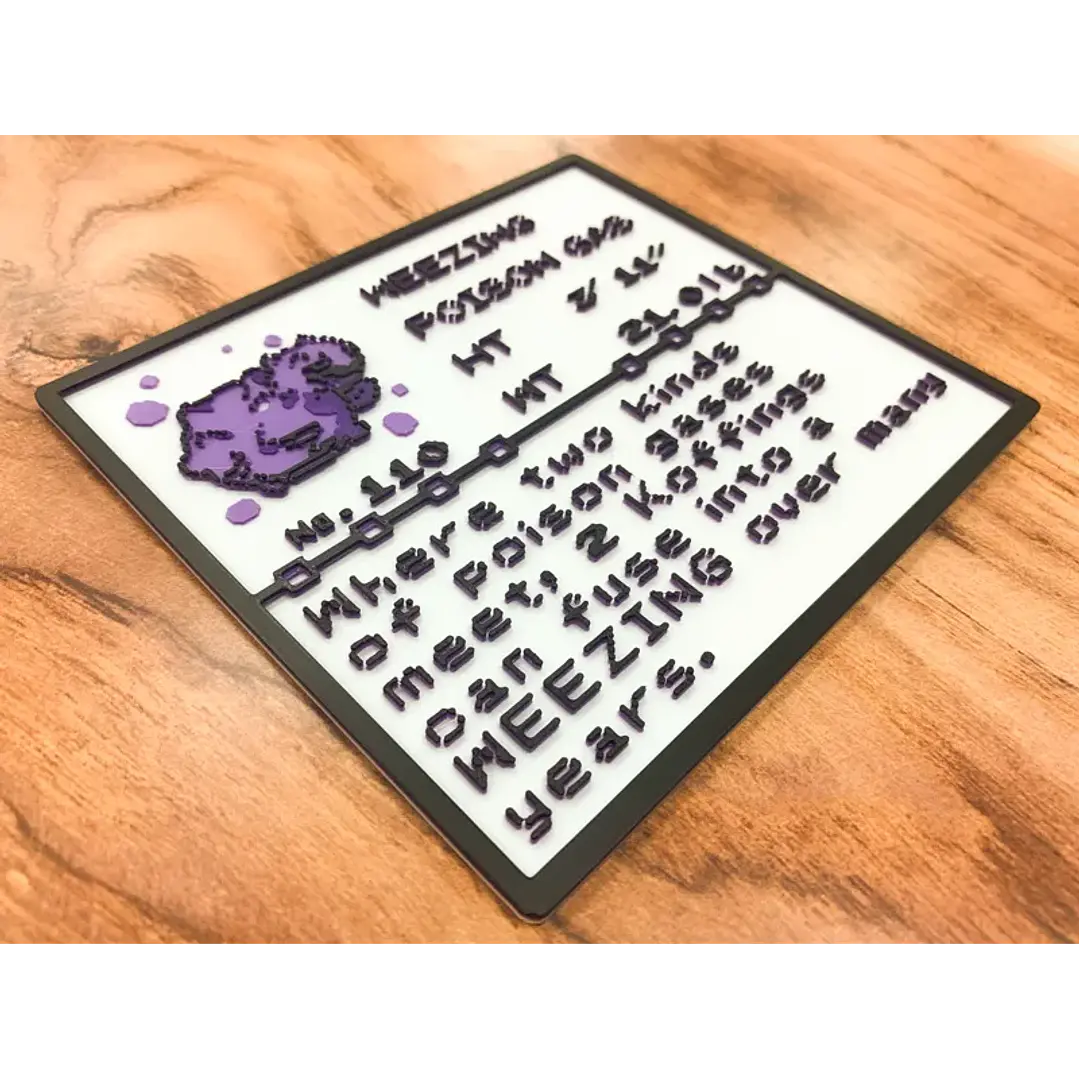 WEEZING
POISON GAS
HT 3' 11"
WT 21.0lb
No.110
Where two kinds
of poison gases
meet, 2 Koffings
can fuse into a
WEEZING over many
years.